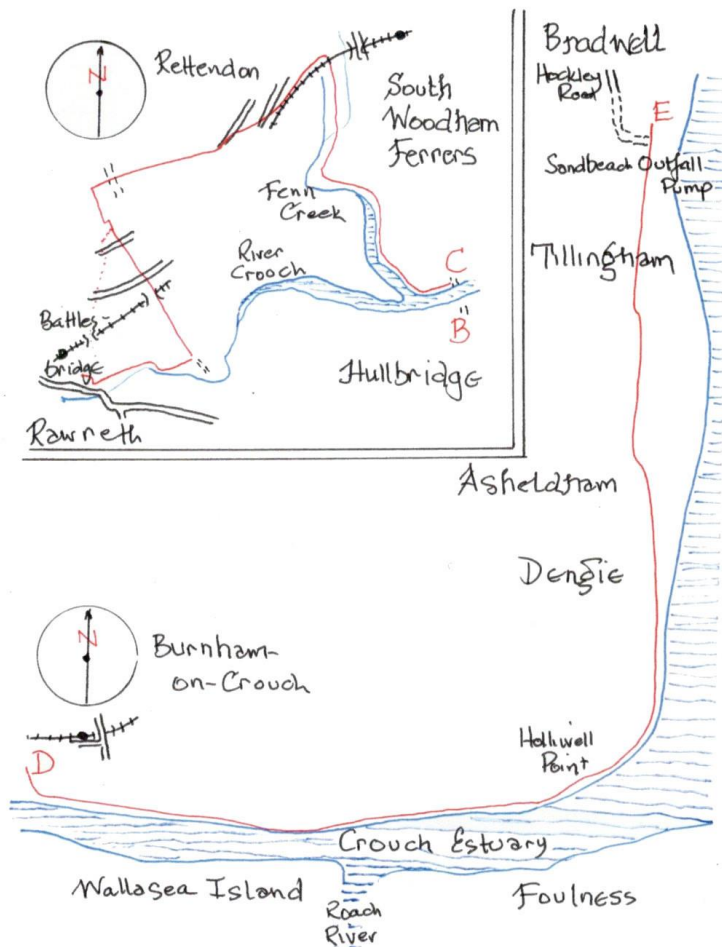 N
Rettendon
South
Woodham
Ferrers
Fenn
Creek
River
Crooch
C
B
Battles-
bridge
Hullbridge
Rawreth
Bradwell
Hockley
Road
E
Sandbeach Outfall
Pump
Tillingham
Asheldham
Dengie
N
Burnham-
on-Crouch
D
Holliwell
Point
Crouch Estuary
Wallasea Island
Foulness
Roach
River